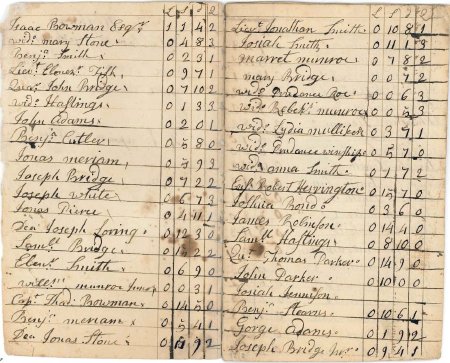 £ s d q
Isaac Bowman Esqr 1 1 4 2
wido mary Stone 0 4 8 3
Benjn Smith 0 2 3 1
Lieut Ebenr Fisk 0 9 7 1
Quar John Bridge 0 7 10 2
wido Hastings 0 1 3 3
John Adams 0 2 0 1
Benjn Cutler 0 5 8 0
Jonas meriam 0 5 9 3
Joseph Bridge 0 7 2 2
Joseph white 0 6 7 3
Jonas Pierce 0 4 11
Dea Joseph Loring 0 12 3 0
Samll Bridge 2 2
Ebenr Smith 0 6 9 0
munroe 0 3 1 0
Capt Thad Bowman 0 14 5 0
Benjn meriam 0 5 4 1
Dea Jonas Stone 0 11 9 2
£ s d q
Lieut Jonathan Smith 0 10 8 1
Josiah Smith 0 11 1 3
marret munroe 0 7 8 2
mary Bridge 0 0 7 2
wido Prudance 0 0 6 3
wido Rebekh munroe 0 0 5 3
wido Lydia mulliken 0 3 7 1
wido Prudance winship 0 5 7 0
wido anna Smith 0 1 7 2
Capt Robert Herrington 0 15 7 0
Joshua Bond 0 3 6 0
James Robinson 0 14 4 0
Samll Hastings 0 8 10 0
Qur Thomas Parker 0 14 9 0
John Parker 0 10 0 0
Josiah Jennison
Benjn Stearns 0 10 6 1
Gorge Adams 0 1 9 2
Joseph Bridge Junr 0 9 4 1